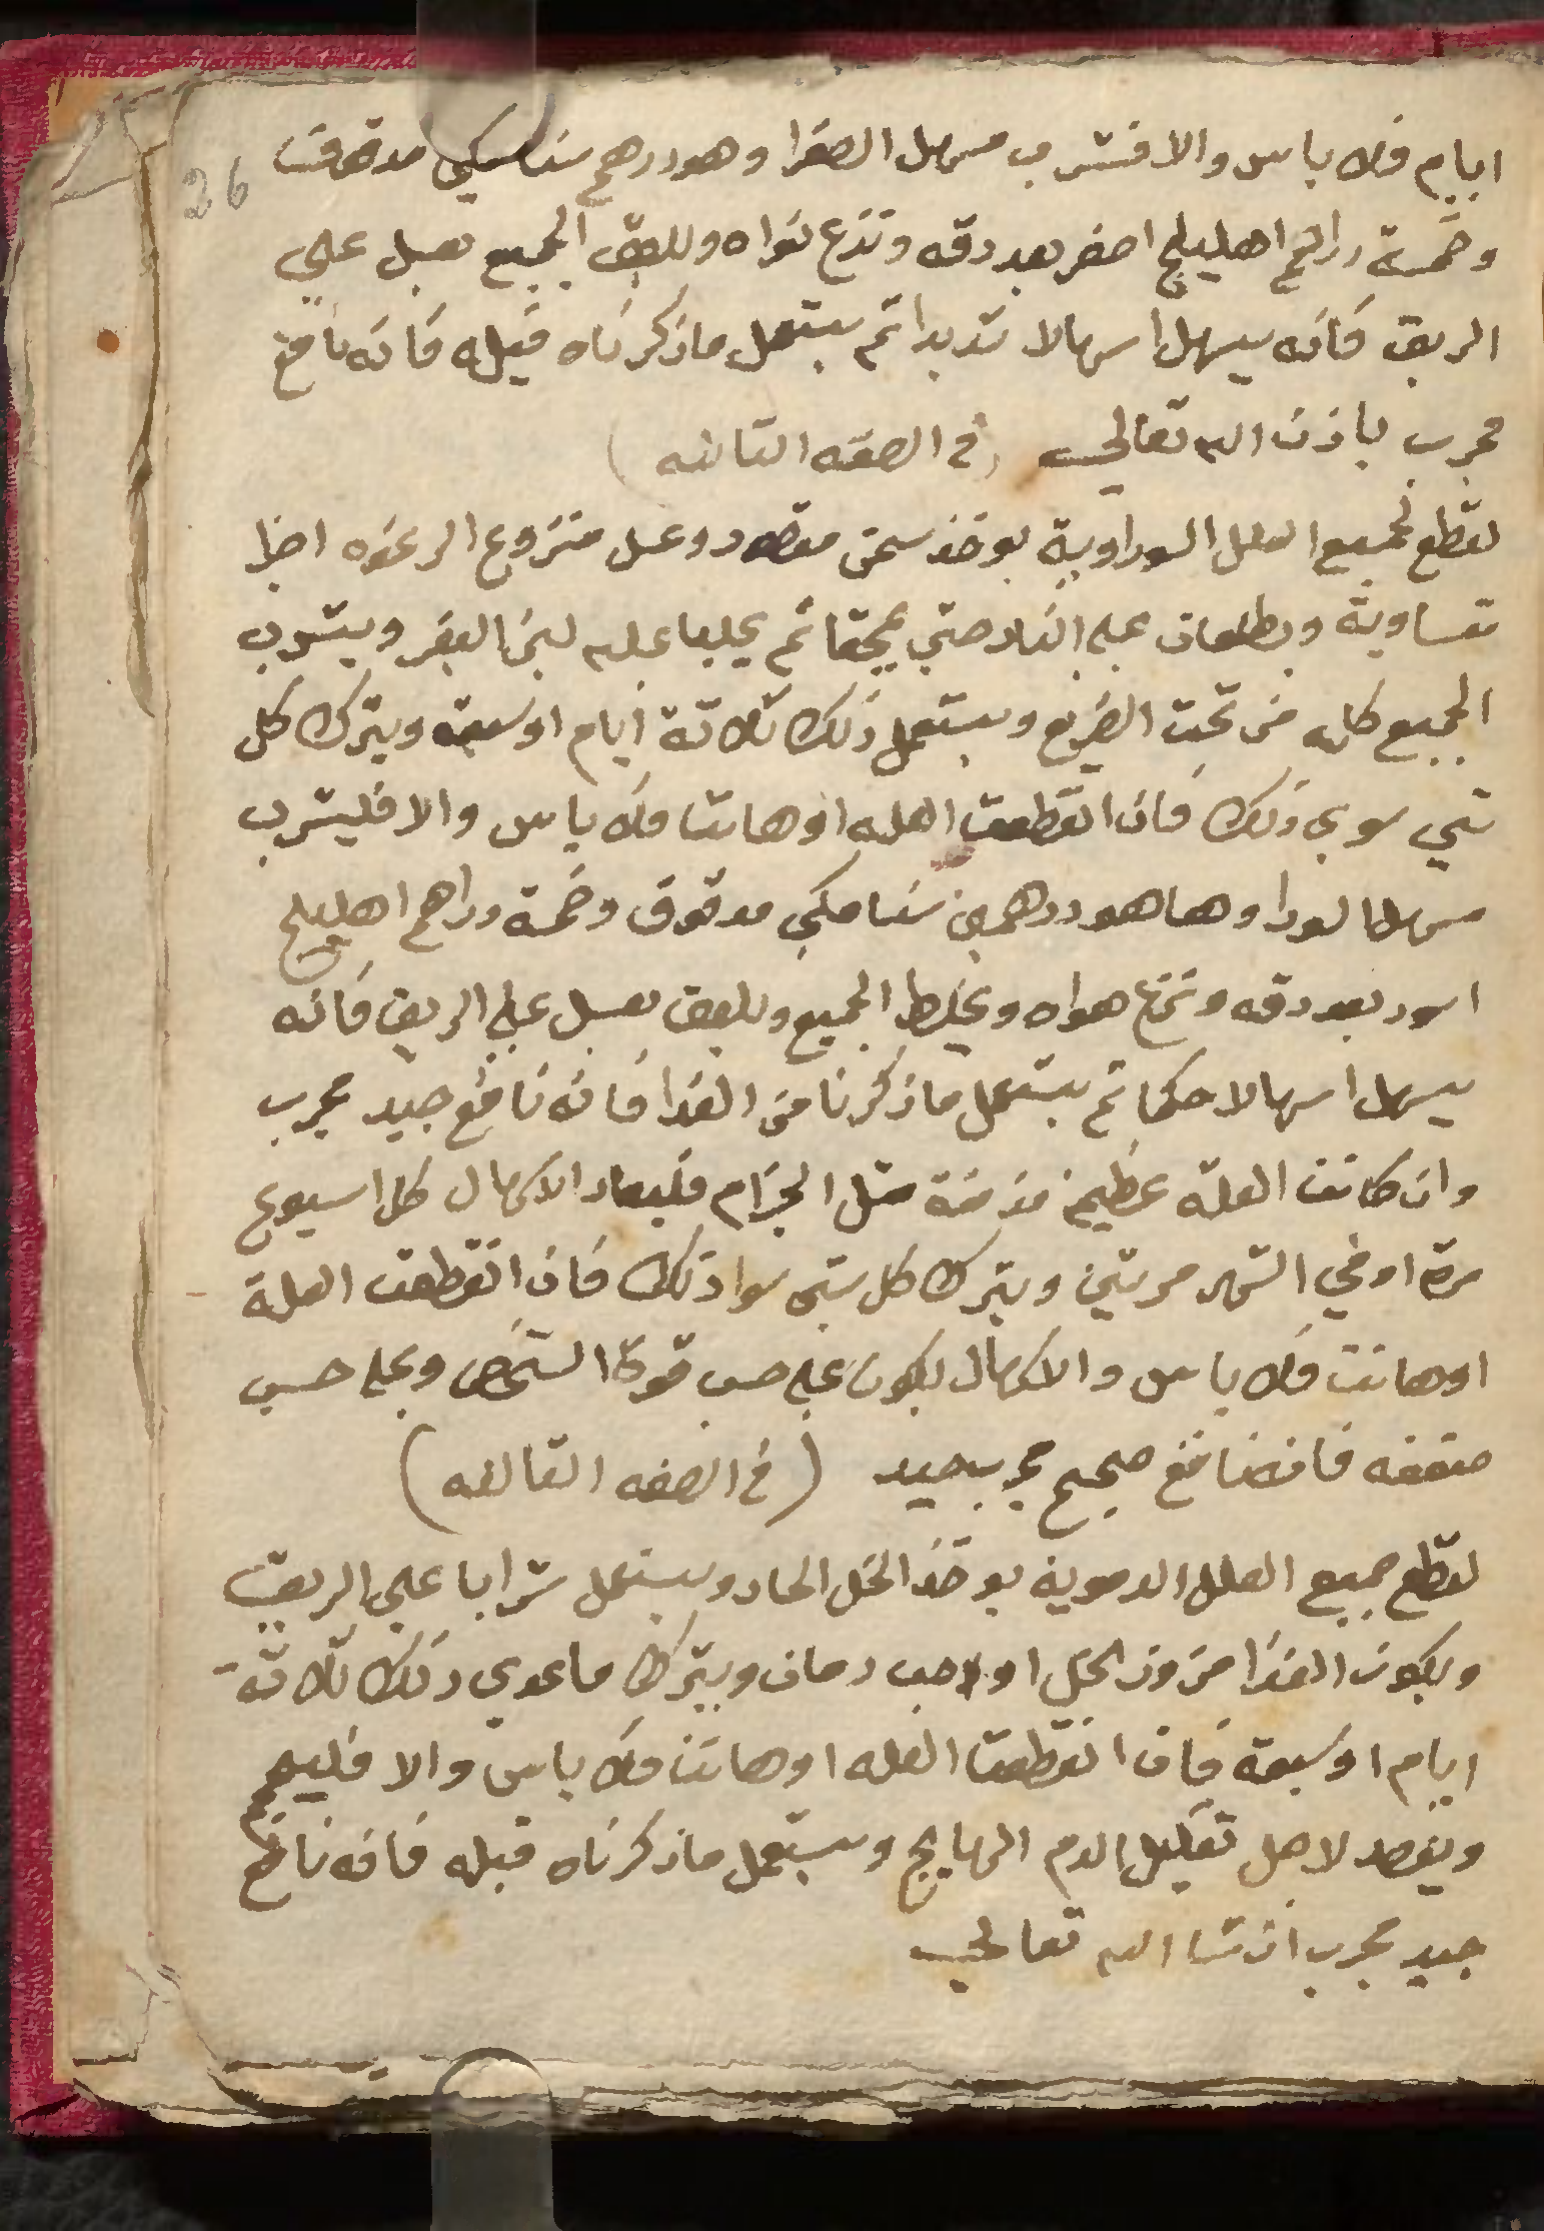 26
ايام فلا باس والا فتشرب مسهل الصفرا وهو درهم سنامكي مدقوقت
وخمسة دراهم اهليلج اصفر بعد دقه ونزع نواه ويلعق الجميع بعسل علي
الريق فانه يسهل اسهالا شديدا ثم يستعمل ماذكرناه قبله فانه نافع
مجرب باذن الله تعالي (في الصفه الثالثه)
لقطع لجميع العلل السوداوية يوخذ سمن مقصد وعسل منزوع الرغوه اجزا
متساوية ويطلعان علي النار حتي يمحقا ثم يحلبا عليه لبن البقر ويشرب
الجميع كله من تحت الضرع ويستعمل ذلك ثلاثة ايام او سبعة ويترك كل
شي سوي ذلك فان انقطعت العله او هانت فلا باس والا فليشرب
مسهل السودا وها هو درهمين سنا مكي مدقوق وخمسة دراهم اهليلج
اسود بعد دقه ونزع هواه ويخلط الجميع ويلعق بعسل علي الريق فانه
يسهل اسهالا حكما ثم يستعمل ماذكرنا من الغدا فانه نافع جيد مجرب
وان كانت العلة عظيمة مزمنة مثل الجزام فليعاد الاسهال كل اسبوع
مرة او في الشهر مرتين ويترك كل شي سوا ذلك فان انقطعت العلة
او هانت فلا باس والاسهال يكون علي حسب قوة الشخص وعلي حسب
ضعفه فانه نافع صحيح مجرب جيد (في الصفه الثالثه)
لقطع جميع العلل الدموية يوخذ الخل الحاد ويستعمل شرابا علي الريق
ويكون الغدا مزور الخل او حب رمان ويترك ماعدي ذلك ثلاثة
ايام او سبعة فان انقطعت العله او هانت فلا باس والا فليحجم
ويفصد لاجل تقليل الدم الهايج ويستعمل ماذكرناه قبله فانه نافع
جيد مجرب ان شا الله تعالي